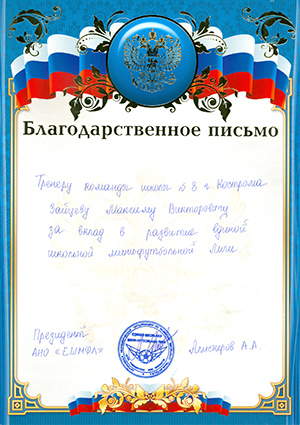 Благодарственное письмо
Тренеру команды школы №8 г. Кострома
Зайцеву Максиму Викторовичу
за вклад в развитие единой
школьной минифутбольной лиги.
Президент
АНО «ЕШМФЛ»
А.А.